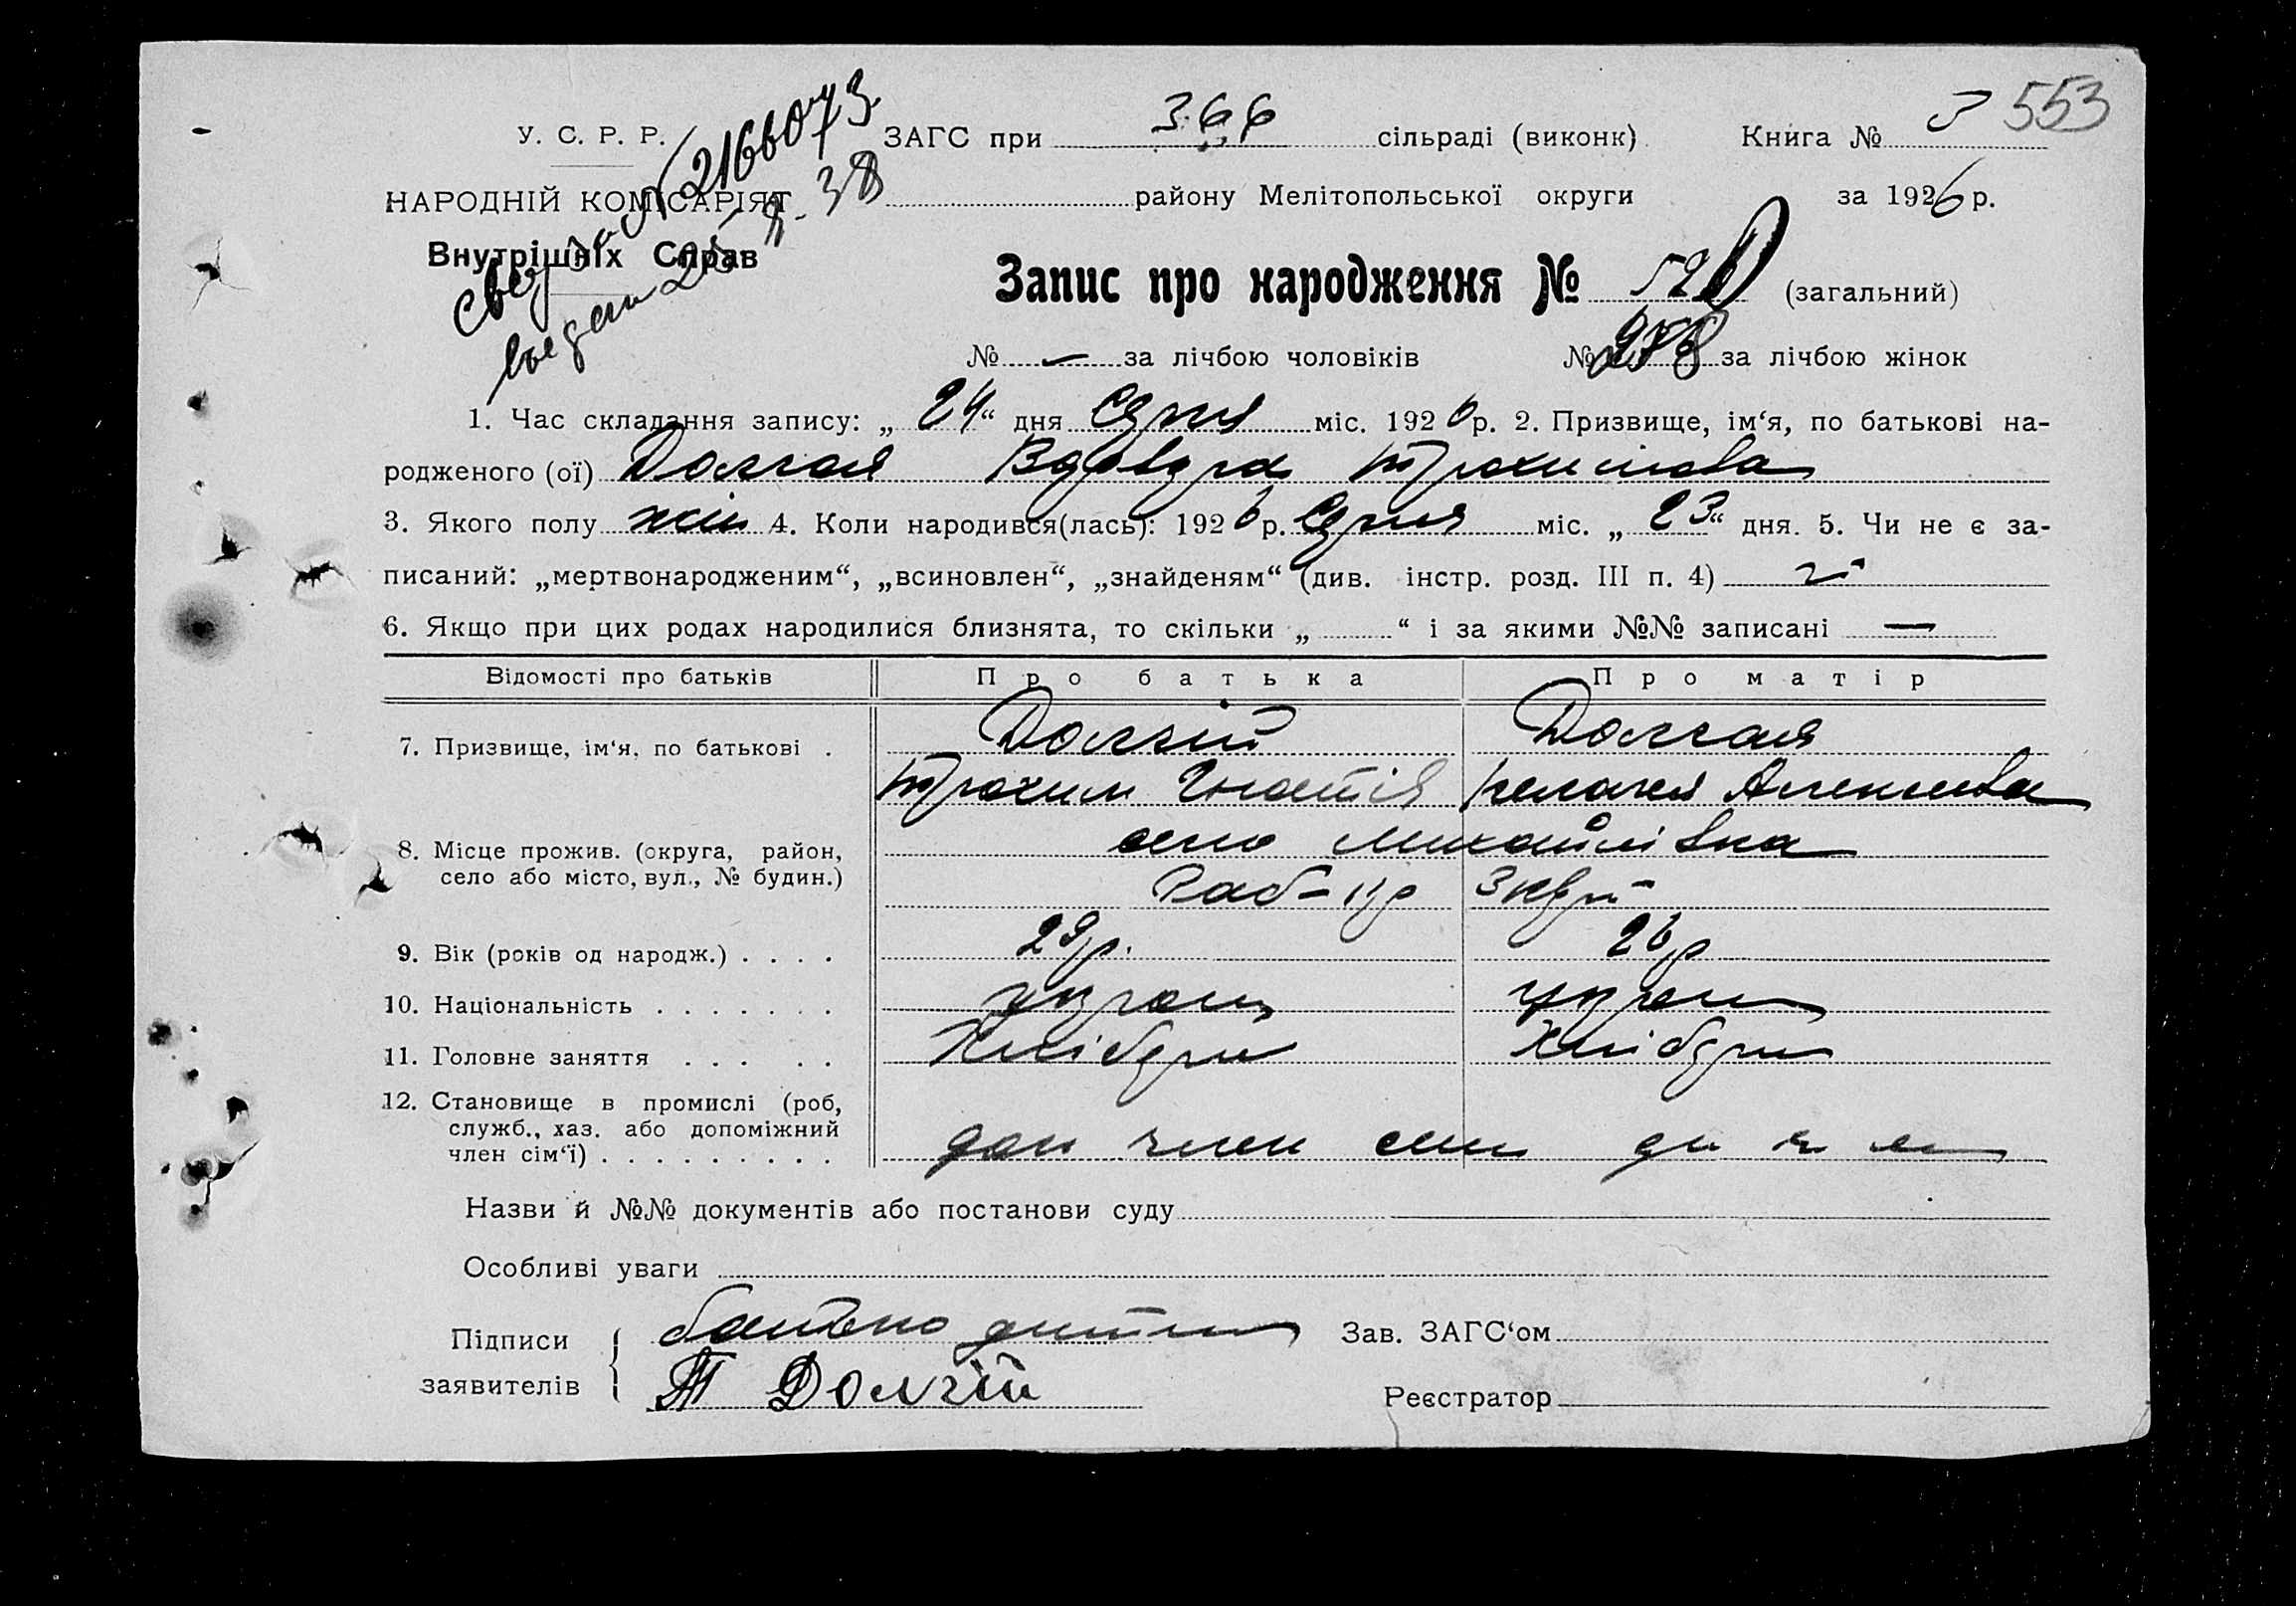 553
У. С. Р. Р. ЗАГС при 366 сільраді (виконк) Книга №
НАРОДНІЙ КОМІСАРІЯТ району Мелітопольської округи за 1926 р.
Внутрішніх Справ
2166073
38
Запис про народження № (загальний)
№ — за лічбою чоловіків № 278 за лічбою жінок
1. Час складання запису: „ 24 “ дня міс. 1926 р. 2. Призвище, ім‘я, по батькові на-
родженого (ої) Долгая Трохимова
3. Якого полу жін 4. Коли народився(лась): 1926 р. міс. „ 23 “ дня. 5. Чи не є за-
писаний: „мертвонародженим“, „всиновлен“, „знайденям“ (див. інстр. розд. III п. 4)
6. Якщо при цих родах народилися близнята, то скільки „ “ і за якими №№ записані —
Відомості про батьків Про батька Про матір
7. Призвище, ім‘я, по батькові . Долгій Долгая
Трохим Гнатів Пелагея Алексеева
8. Місце прожив. (округа, район, село Михайлівка
село або місто, вул., № будин.)
9. Вік (років од народж.) . . . . 29 р. 26 р
10. Національність . . . . . . . украін украін
11. Головне заняття . . . . . Хлібороб Хлібороб
12. Становище в промислі (роб,
служб., хаз. або допоміжний
член сім‘ї) . . . . . . . . . доп член сем
Назви й №№ документів або постанови суду
Особливі уваги
Підписи батько дитини Зав. ЗАГС‘ом
заявителів Т Долгій Реєстратор